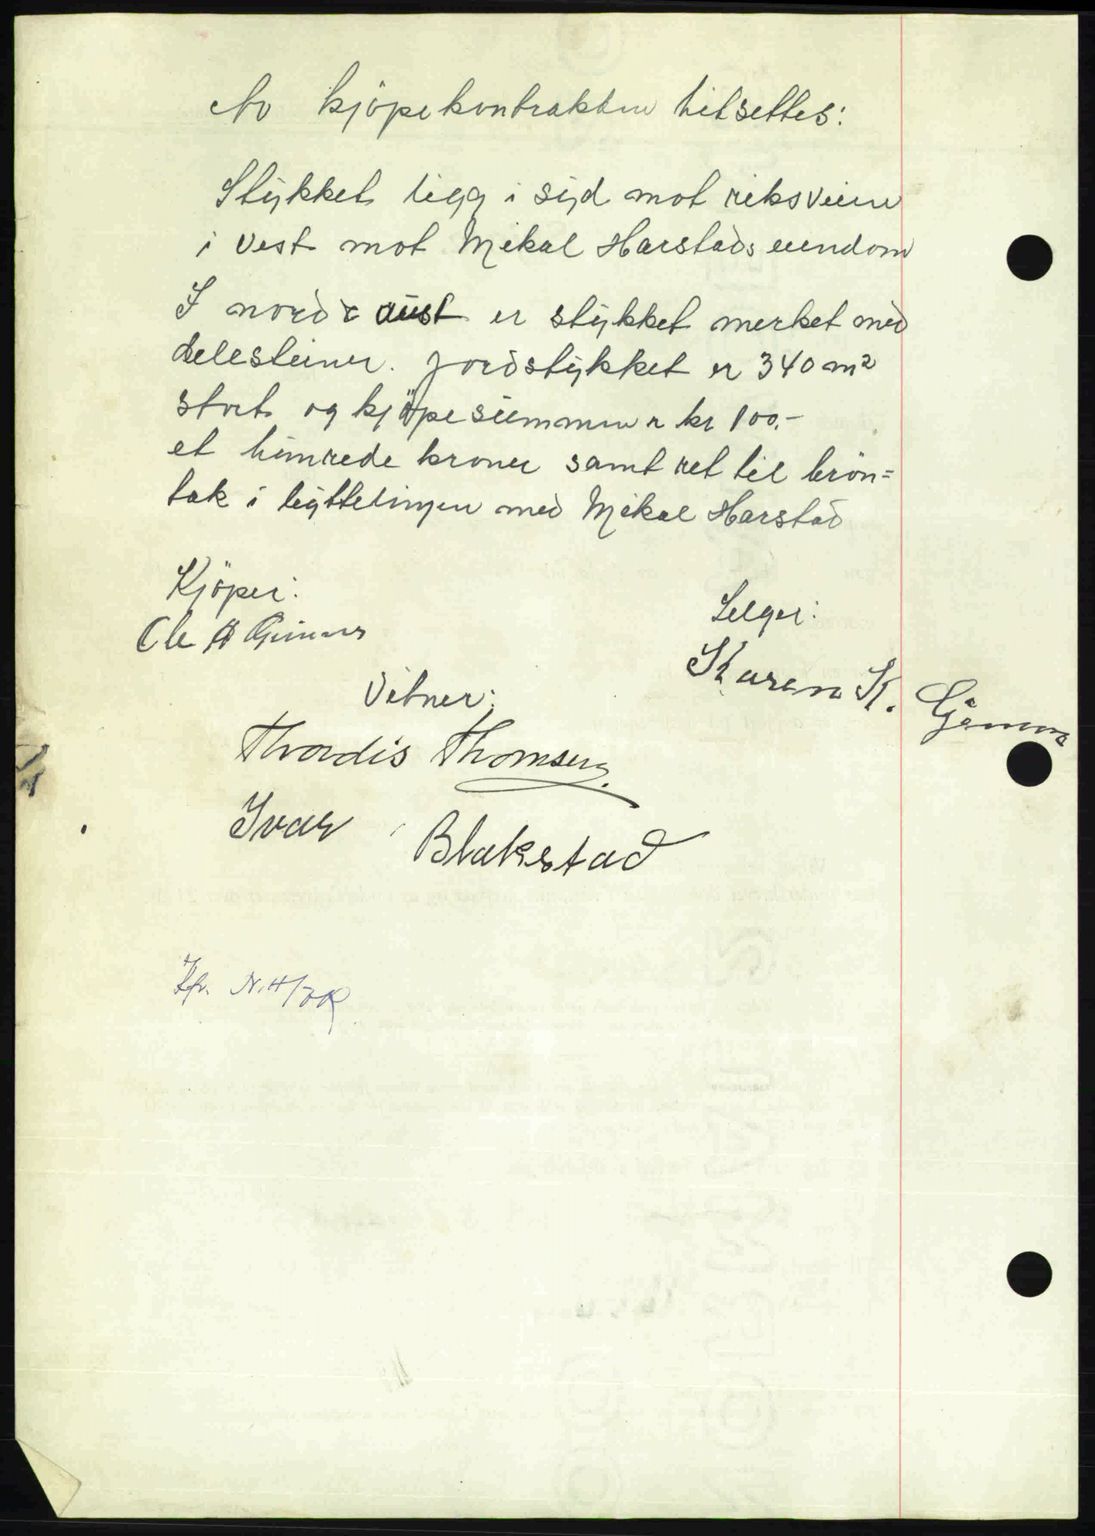 Av kjöpekontrakten hitsettes:
Stykket ligg i syd mot riksveien
i vest mot Mikal Harstads eiendom
I nord & aust er stykket merket med
delesteiner. Jordstykket er 340 m²
stort og kjöpesummen er kr 100.-
et hundrede kroner samt ret til brön=
tak i byttelingen med Mikal Harstad
Kjöper:
Selger:
Ole A
Karen K.
Vitner:
Thordis Thomsen
Ivar Blakstad